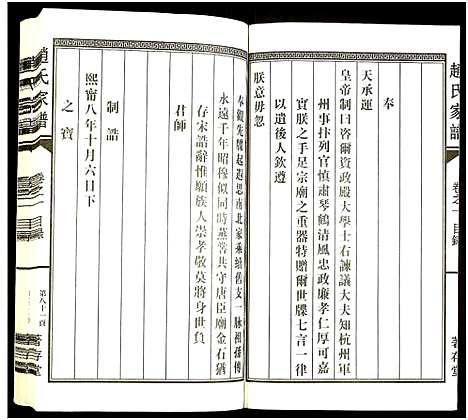 趙氏家譜
卷之一 目錄
著存堂
奉
天承運
皇帝制曰咨爾資政殿大學士右諫議大夫知杭州軍
州事抃列官慎肅琴鶴清風忠政廉孝仁厚可嘉
實朕之手足宗廟之重器特贈爾世牒七言一律
以遺後人欽遵
朕意毋忽
奉觀先牒起遐思南北家乘續舊支一脉祖孫傳
永遠千年昭穆似同時蒸嘗共守唐臣廟金石猶
存宋誥辭惟願族人崇孝敬莫將身世負
君師
制誥
熙甯八年十月六日下
之寶
趙氏家譜
卷之一 目錄
第八十一頁
著存堂